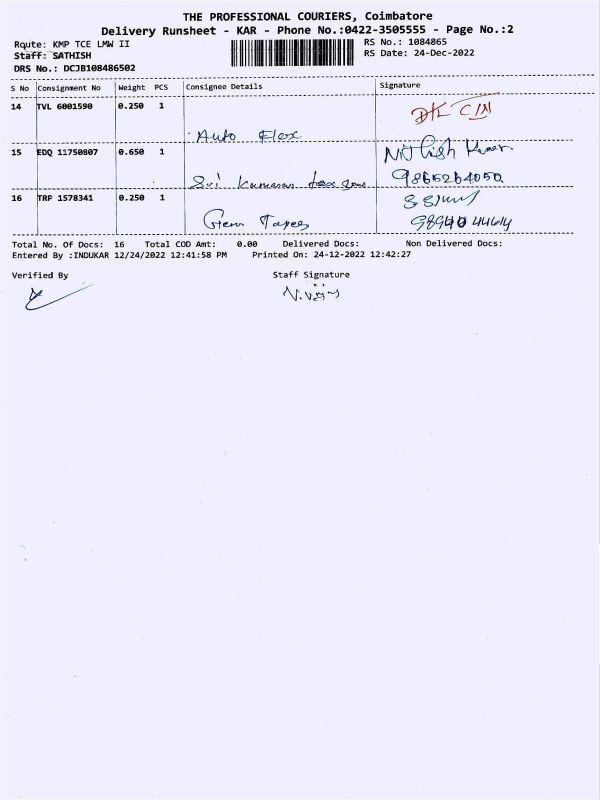 THE PROFESSIONAL COURIERS, Coimbatore
Delivery Runsheet - KAR - Phone No.:0422-3505555 - Page No.:2
Route: KMP TCE LMW II
RS No.: 1084865
Staff: SATHISH
RS Date: 24-Dec-2022
DRS No.: DCJB108486502
S No Consignment No Weight PCS Consignee Details Signature
14 TVL 6001590 0.250 1
Auto Flex
15 EDQ 11750807 0.650 1
Sri Kumaran
9865264050
16 TRP 1578341 0.250 1
Gem Tapes
Total No. Of Docs: 16 Total COD Amt: 0.00 Delivered Docs: Non Delivered Docs:
Entered By :INDUKAR 12/24/2022 12:41:58 PM Printed On: 24-12-2022 12:42:27
Verified By Staff Signature